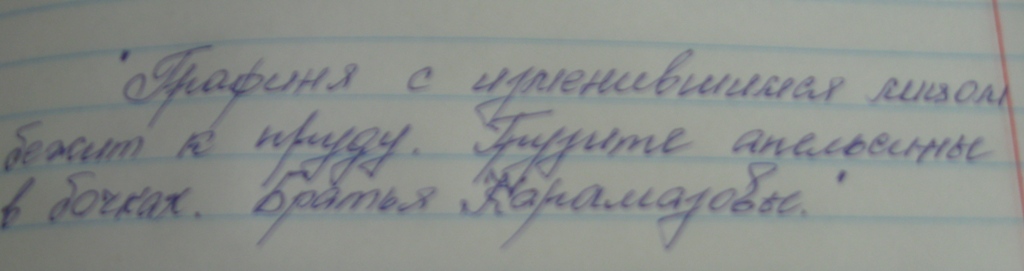 "Графиня с изменившимся лицом
бежит к пруду. Грузите апельсины
в бочках. Братья Карамазовы."